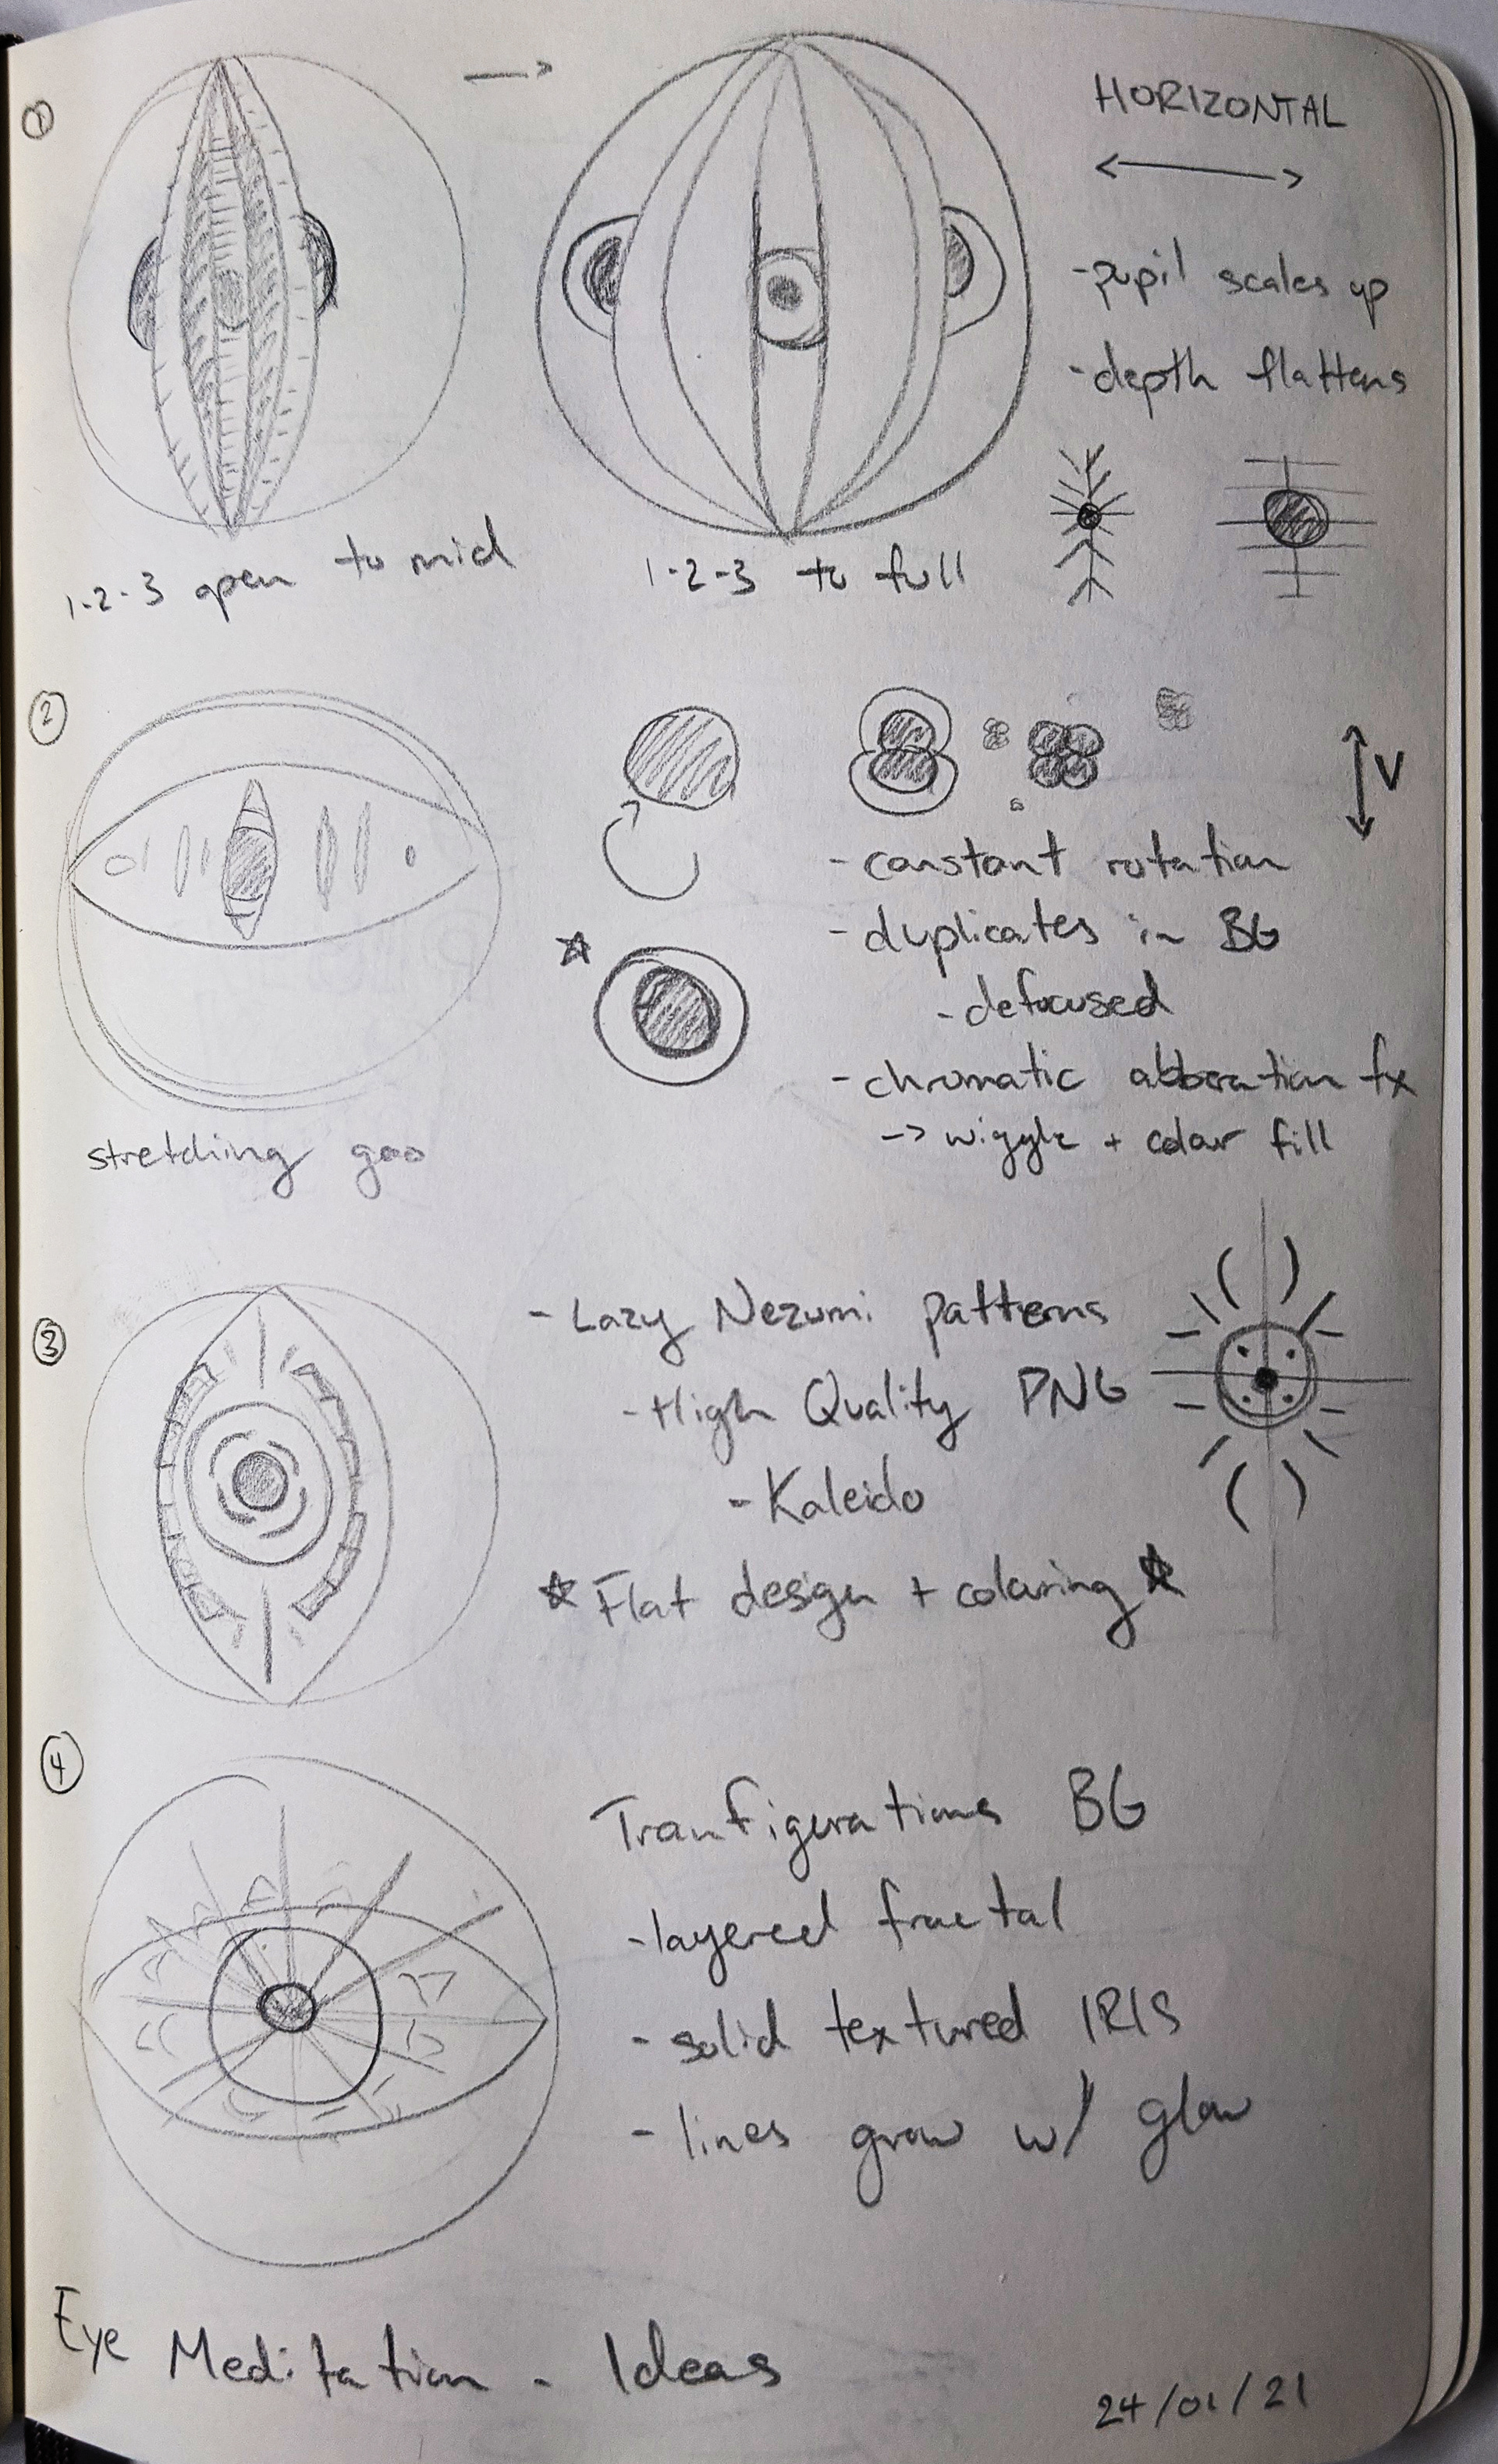 1
HORIZONTAL
- pupil scales up
- depth flattens
1-2-3 open to mid
1-2-3 to full
2
V
- constant rotation
- duplicates in BG
- defocused
- chromatic abberation fx
-> wiggle + color fill
stretching goo
3
- Lazy Nezumi patterns
- High Quality PNG
- Kaleido
Flat design + coloring
4
Tranfigurations BG
- layered fractal
- solid textured IRIS
- lines grow w/ glow
Eye Meditation - Ideas
24/01/21